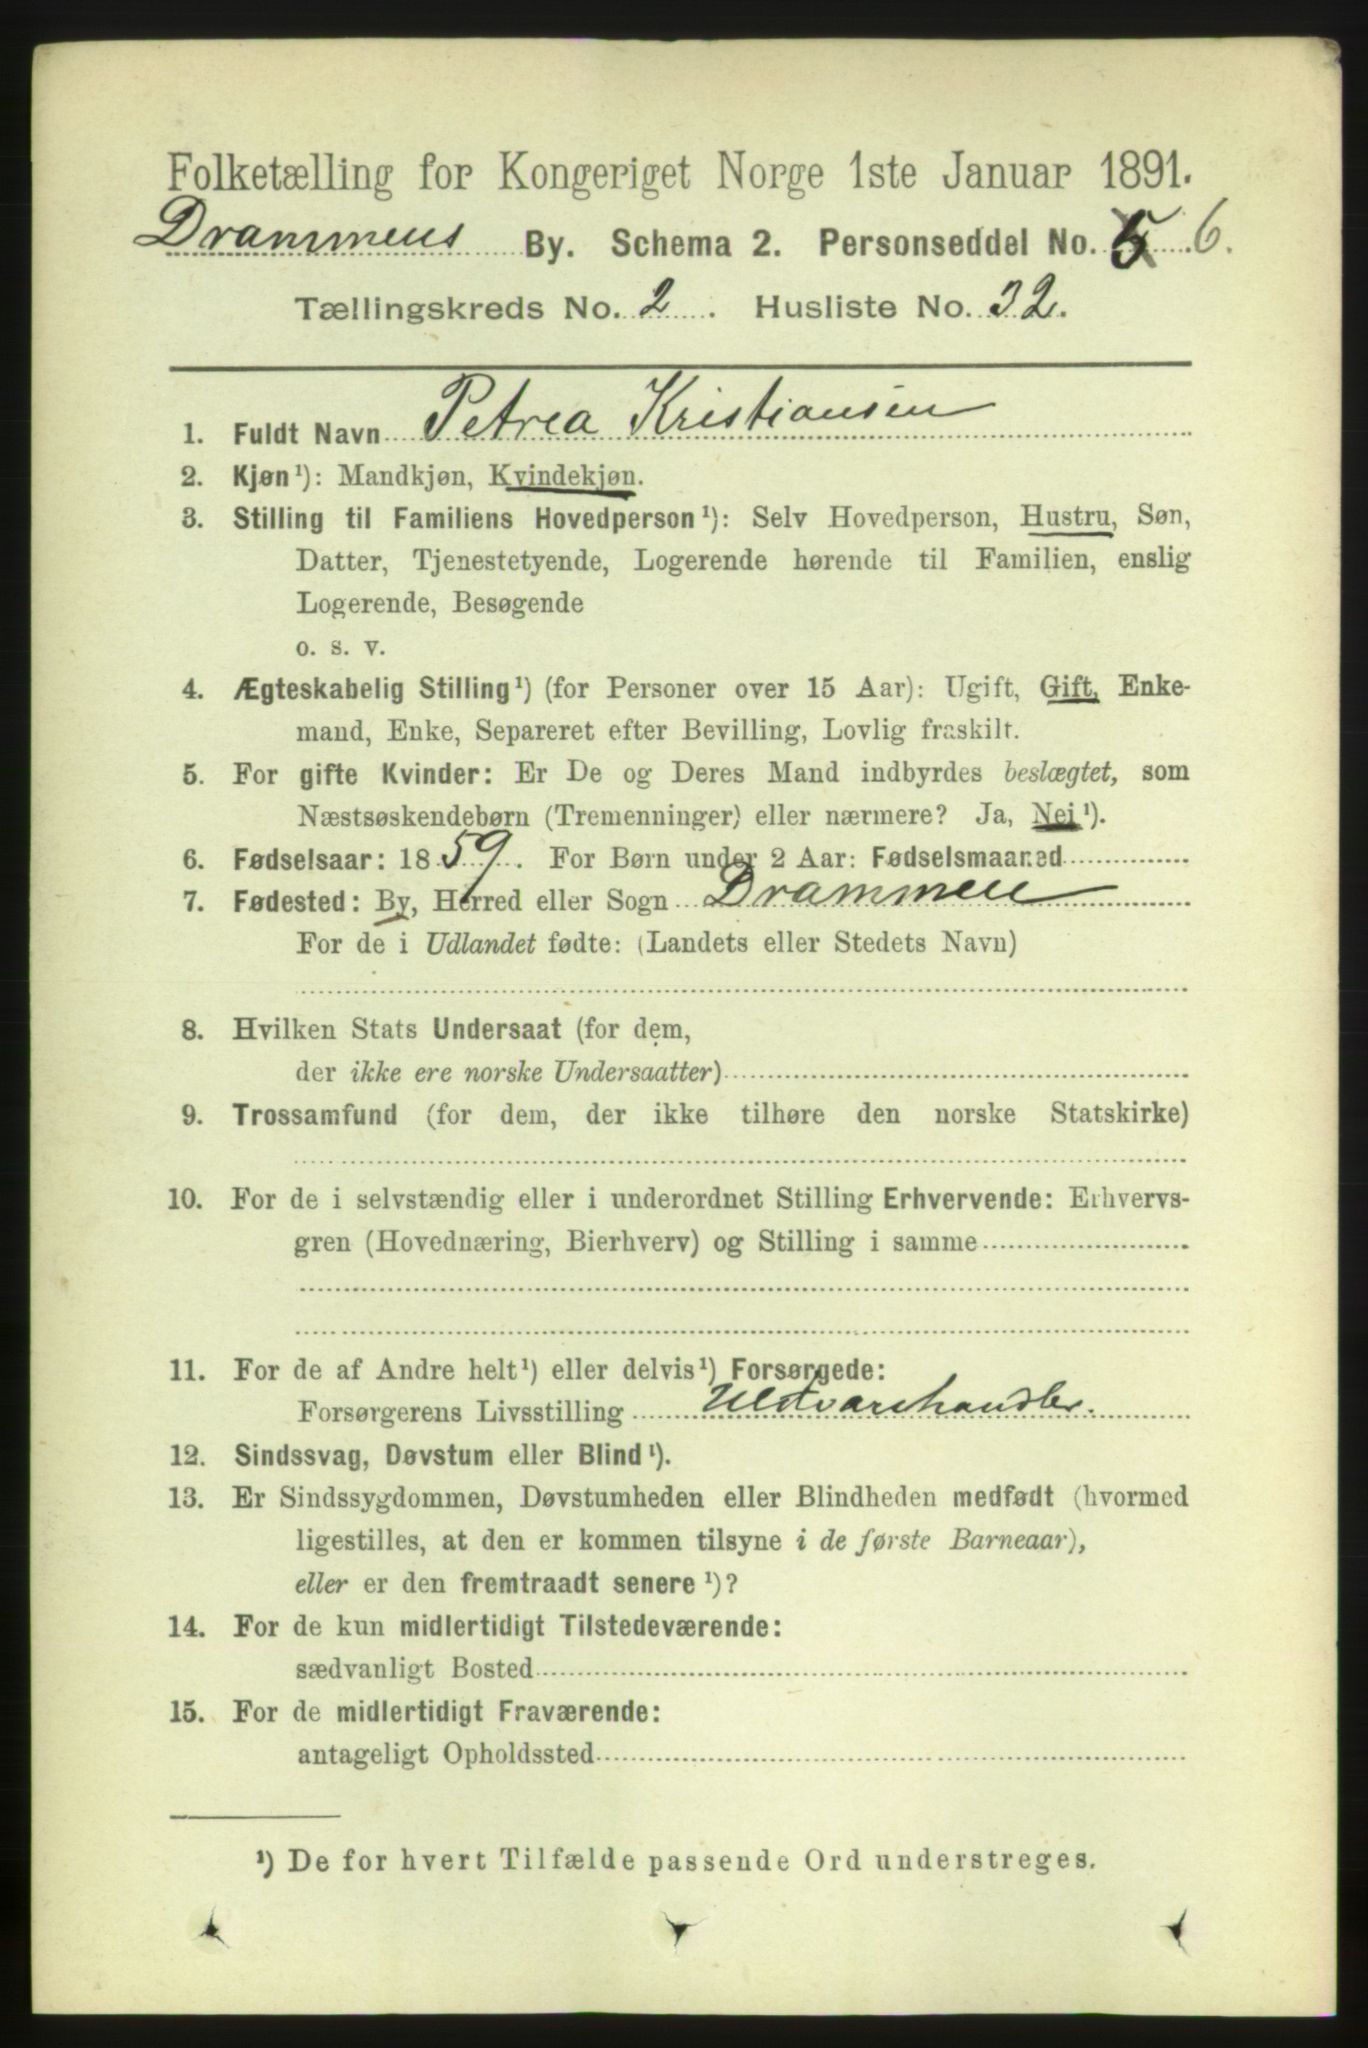 Folketælling for Kongeriget Norge 1ste Januar 1891.
Drammens By. Schema 2. Personseddel No. 5 6.
Tællingskreds No. 2. Husliste No. 32.
1. Fuldt Navn Petrea Kristiansen
2. Kjøn¹): Mandkjøn, Kvindekjøn.
3. Stilling til Familiens Hovedperson¹): Selv Hovedperson, Hustru, Søn,
Datter, Tjenestetyende, Logerende hørende til Familien, enslig
Logerende, Besøgende
o. s. v.
4. Ægteskabelig Stilling¹) (for Personer over 15 Aar): Ugift, Gift, Enke-
mand, Enke, Separeret efter Bevilling, Lovlig fraskilt.
5. For gifte Kvinder: Er De og Deres Mand indbyrdes beslægtet, som
Næstsøskendebørn (Tremenninger) eller nærmere? Ja, Nei¹).
6. Fødselsaar: 1859. For Børn under 2 Aar: Fødselsmaaned
7. Fødested: By, Herred eller Sogn Drammen
For de i Udlandet fødte: (Landets eller Stedets Navn)
8. Hvilken Stats Undersaat (for dem,
der ikke ere norske Undersaatter)
9. Trossamfund (for dem, der ikke tilhøre den norske Statskirke)
10. For de i selvstændig eller i underordnet Stilling Erhvervende: Erhvervs-
gren (Hovednæring, Bierhverv) og Stilling i samme
11. For de af Andre helt¹) eller delvis¹) Forsørgede:
Forsørgerens Livsstilling Uldvarehandler.
12. Sindssvag, Døvstum eller Blind¹).
13. Er Sindssygdommen, Døvstumheden eller Blindheden medfødt (hvormed
ligestilles, at den er kommen tilsyne i de første Barneaar),
eller er den fremtraadt senere¹)?
14. For de kun midlertidigt Tilstedeværende:
sædvanligt Bosted
15. For de midlertidigt Fraværende:
antageligt Opholdssted
¹) De for hvert Tilfælde passende Ord understreges.